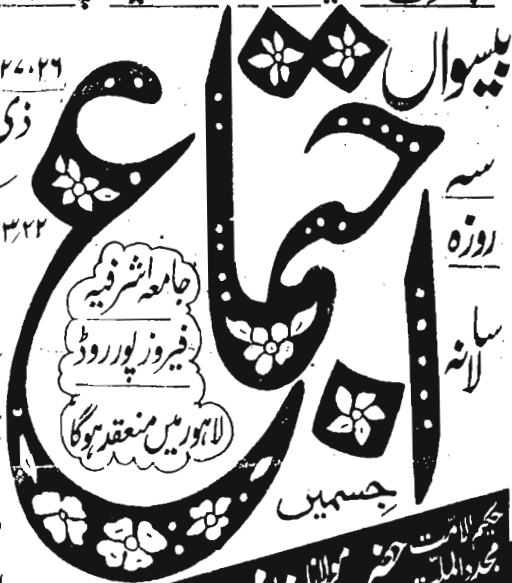 بیسواں
سہ
روزہ
سالانہ
اجتماع
۲۷،۲۶
ذی
۳/۲۲
جامعہ اشرفیہ
فیروز پور روڈ
لاہور میں منعقد ہوگا
جسمیں
حکیم الامت
مجدد الملت
حضرت
مولانا